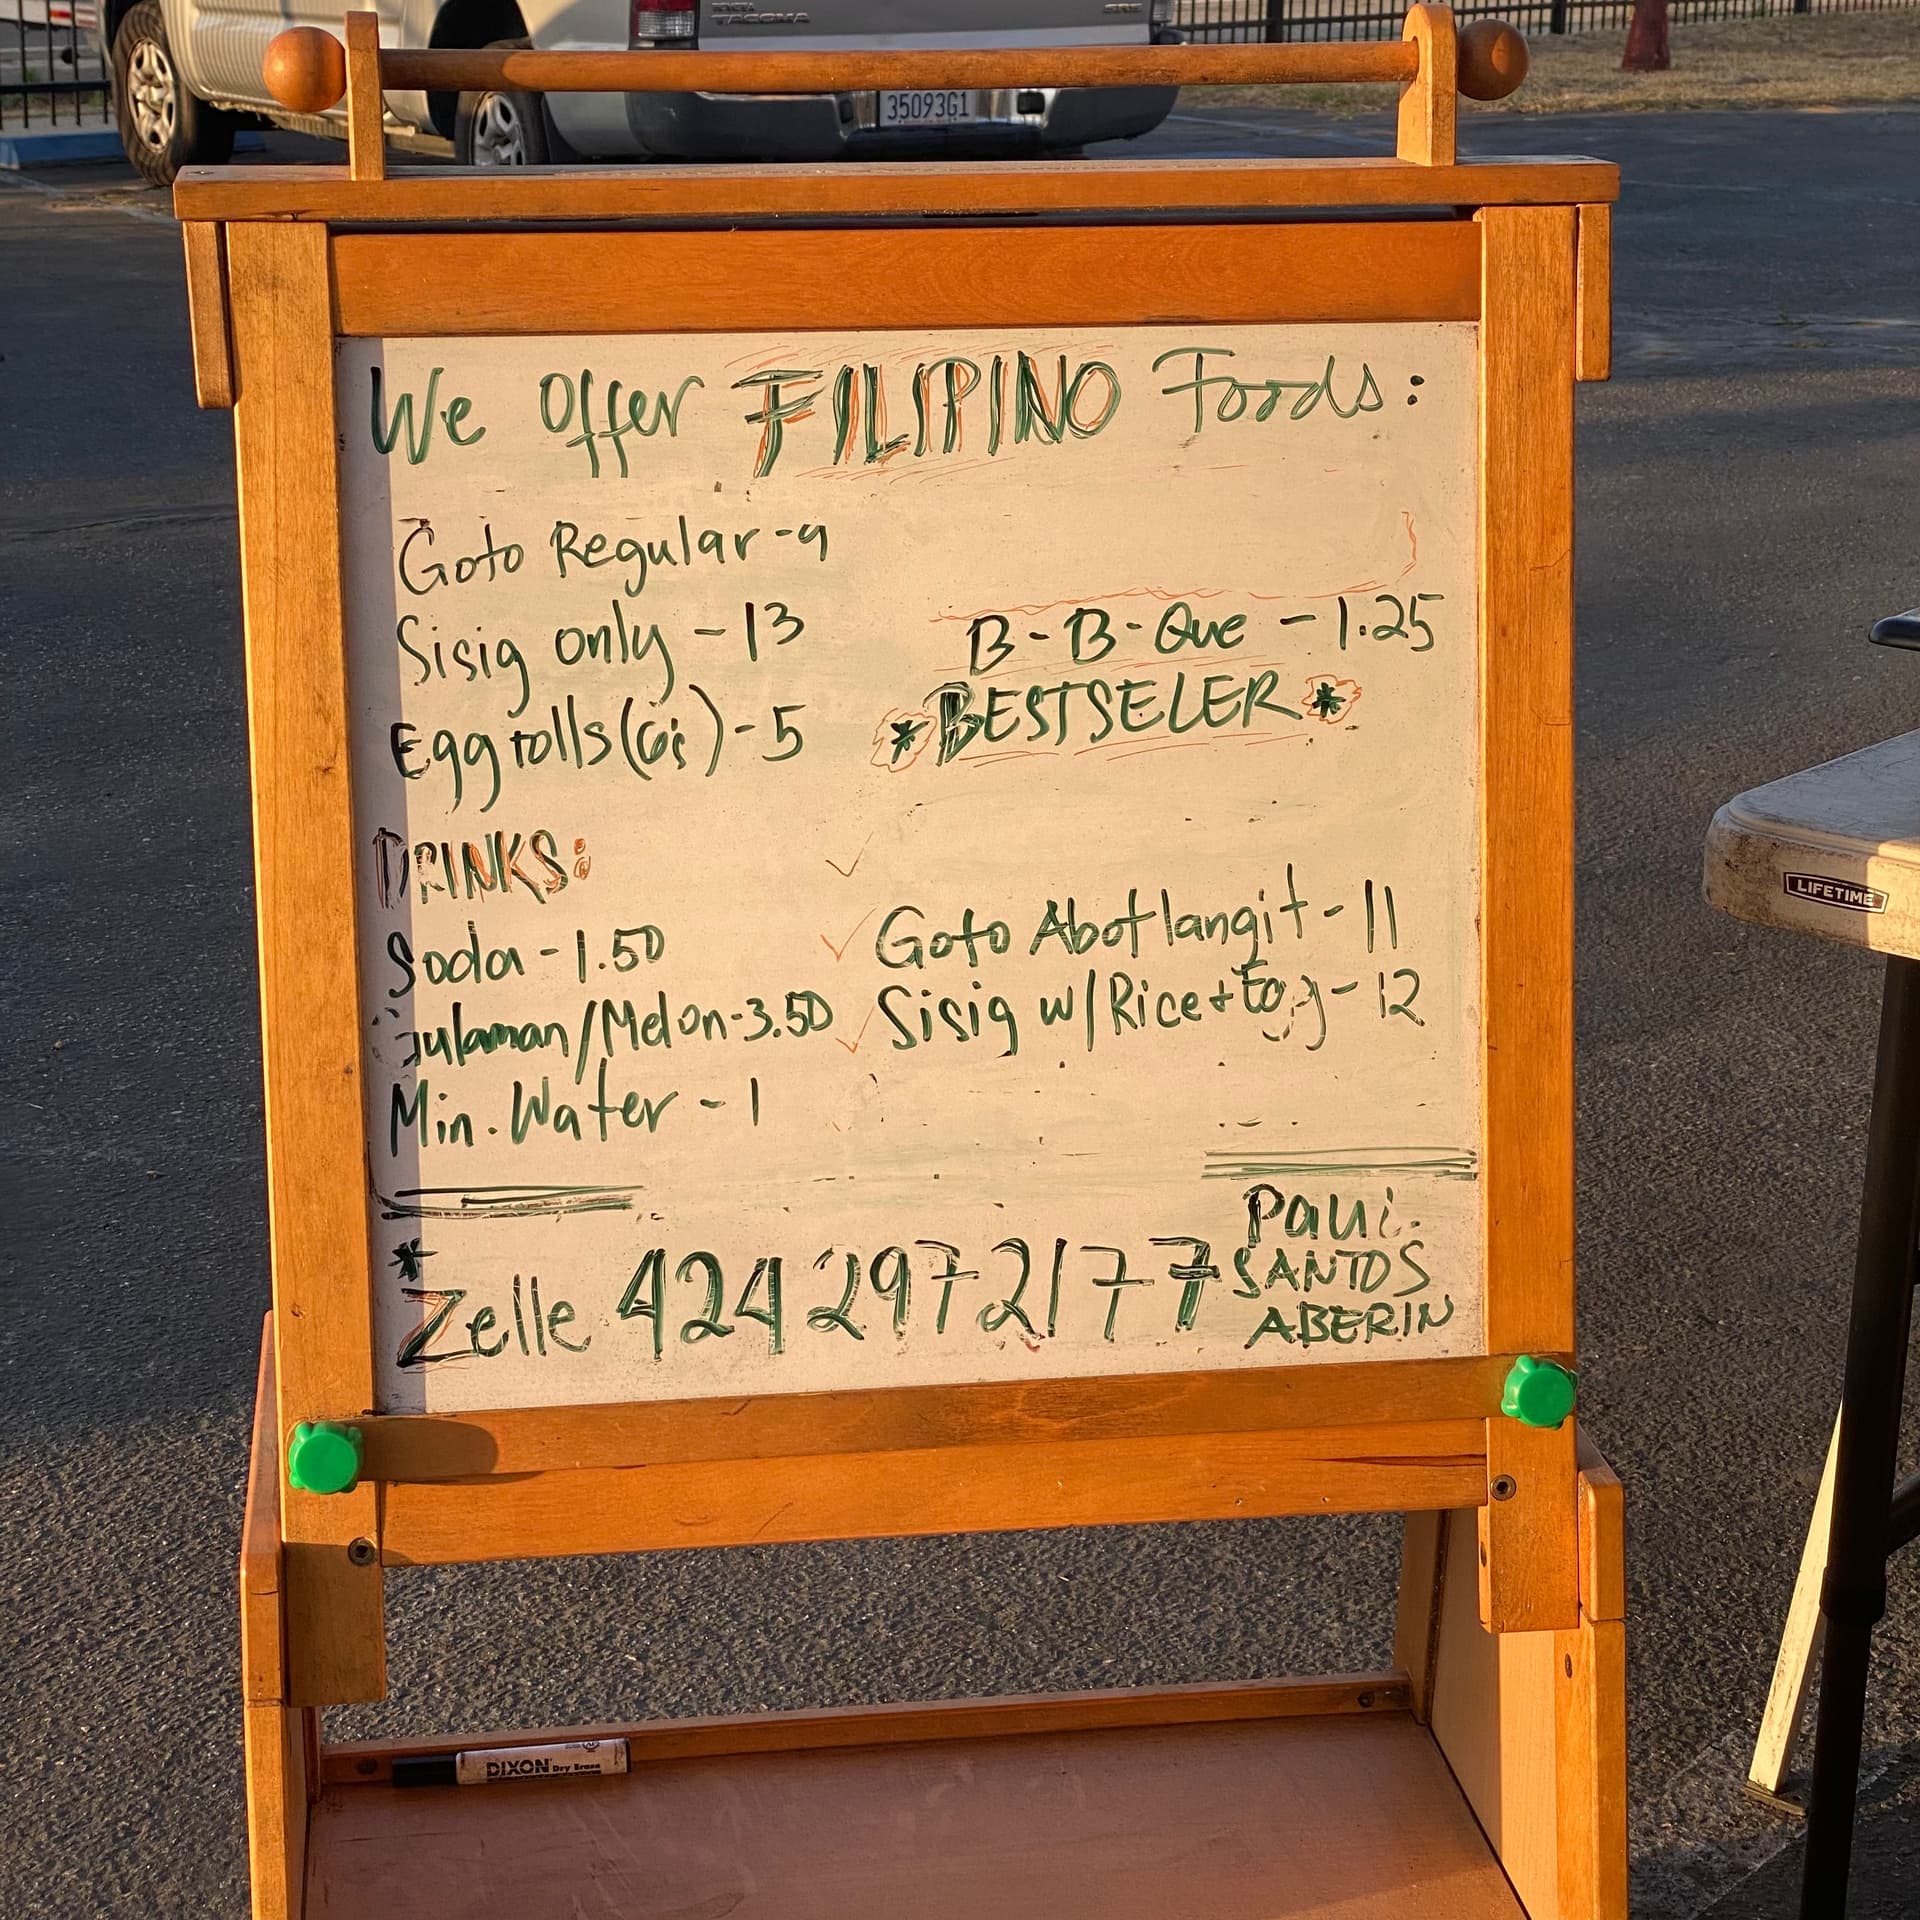 TACOMA
35093G1
We Offer FILIPINO Foods:
Goto Regular - 9
Sisig only - 13
Egg rolls (6s) - 5
B-B-Que - 1.25
*BESTSELER*
DRINKS:
Soda - 1.50
Gulaman/Melon - 3.50
Min. Water - 1
Goto Abot langit - 11
Sisig w/Rice + Egg - 12
*Zelle 424 297 2177
SANTOS
ABERIN
LIFETIME
DIXON Dry Erase